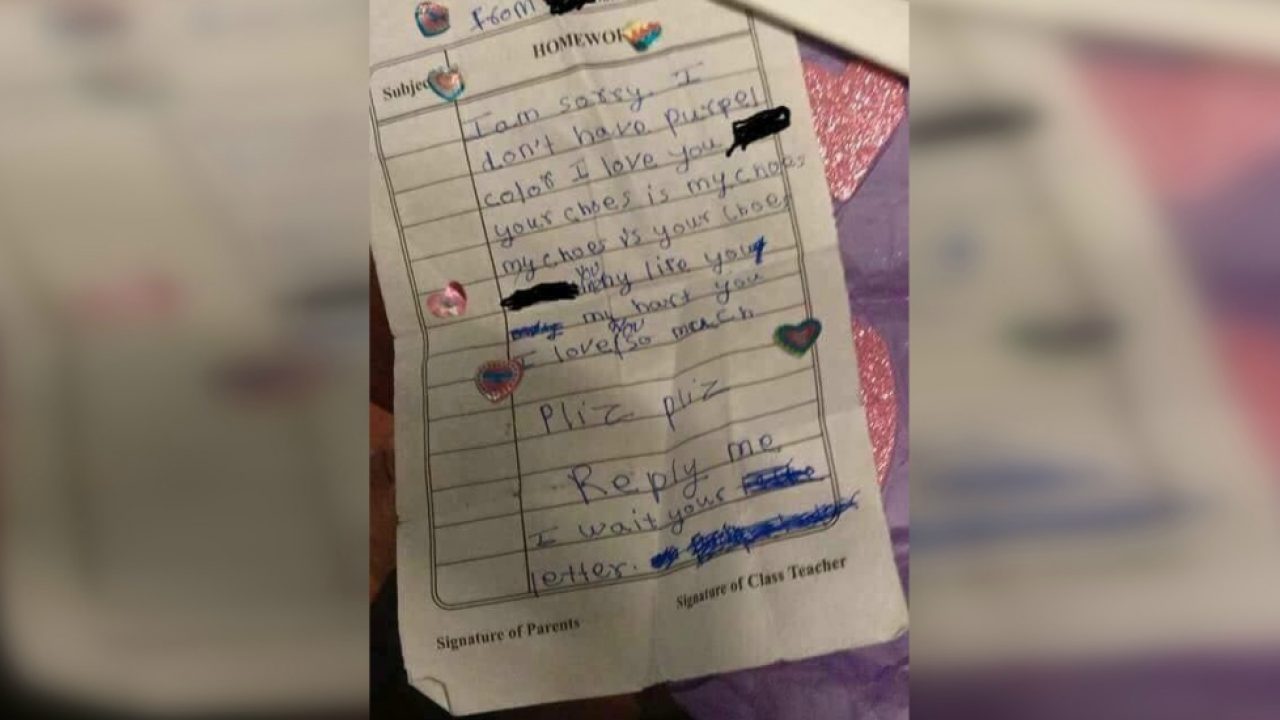 From
HOMEWOR
Subjec
I am sorry. I
don't have purpel
color I love you
your choes is my choes
my choes is your choes
you
my life your
my hart you
you
I love so much
Pliz pliz
Reply me
I wait your
letter.
Signature of Parents
Signature of Class Teacher